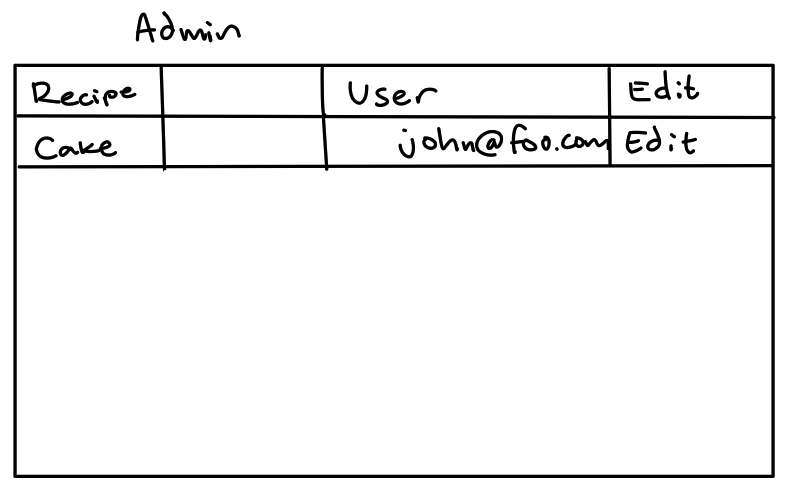 Admin
Recipe User Edit
Cake john@foo.com Edit